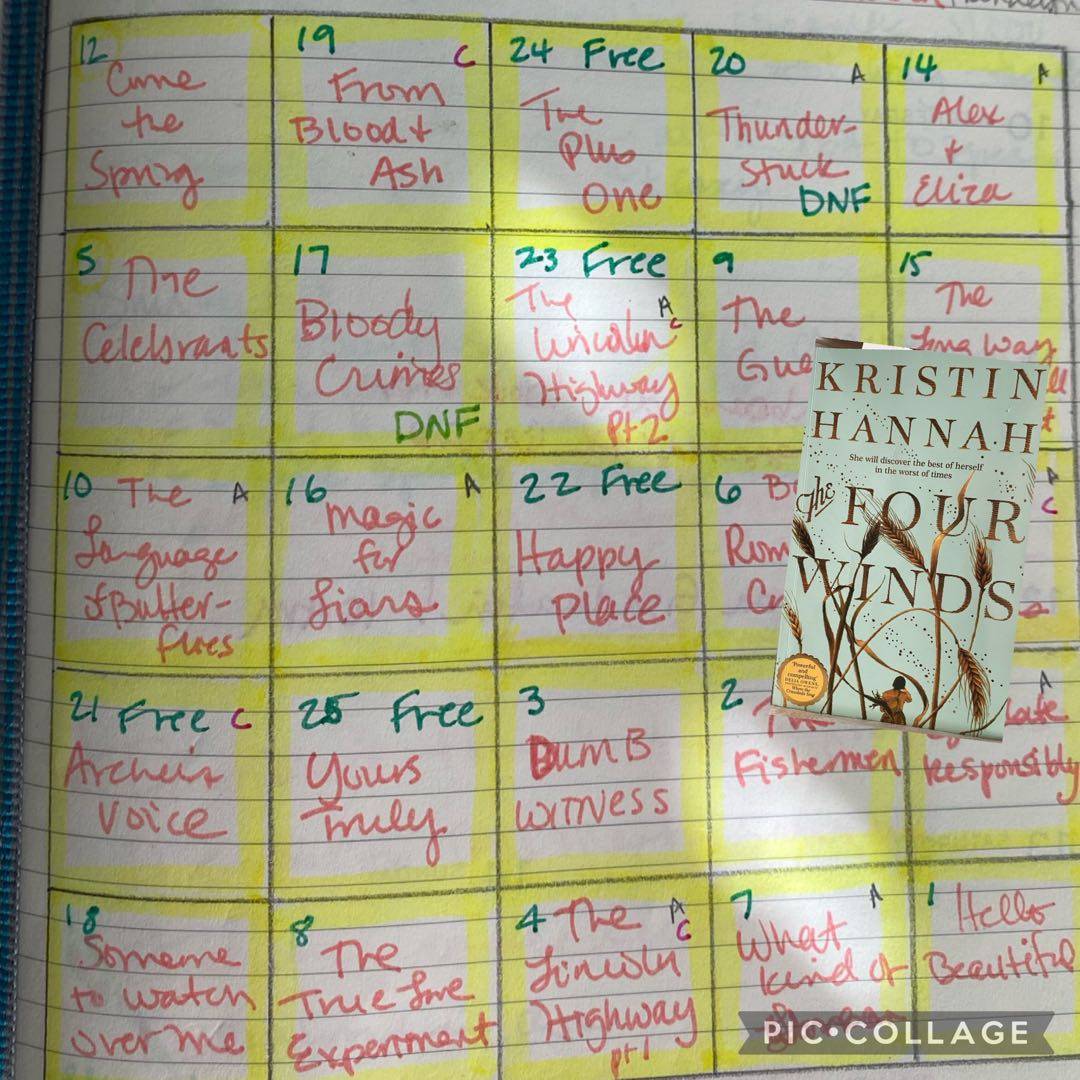 12
Come
the
Spring
19 C
From
Blood +
Ash
24 Free
The
Plus
One
20 A
Thunder-
stuck
DNF
14 A
Alex
+
Eliza
5 The
Celebrants
17
Bloody
Crimes
DNF
23 Free
The A
Lincoln C
Highway
Pt 2
9
The
Gue
15
The
Long Way
10 The A
Language
of Butter-
flies
16 A
Magic
for
Liars
22 Free
Happy
Place
6 B
Rom
A
C
21 Free C
Archer's
Voice
25 Free
Yours
Truly
3
Dumb
Witness
2
The
Fishermen
A
Responsibly
18
Someone
to watch
over me
8
The
True Love
Experiment
4 The A
Lincoln C
Highway
pt 1
7 A
What
kind of
1 Hello
Beautiful
KRISTIN
HANNAH
She will discover the best of herself
in the worst of times
The FOUR
WINDS
'Powerful
and
compelling'
DELIA OWENS
PIC•COLLAGE